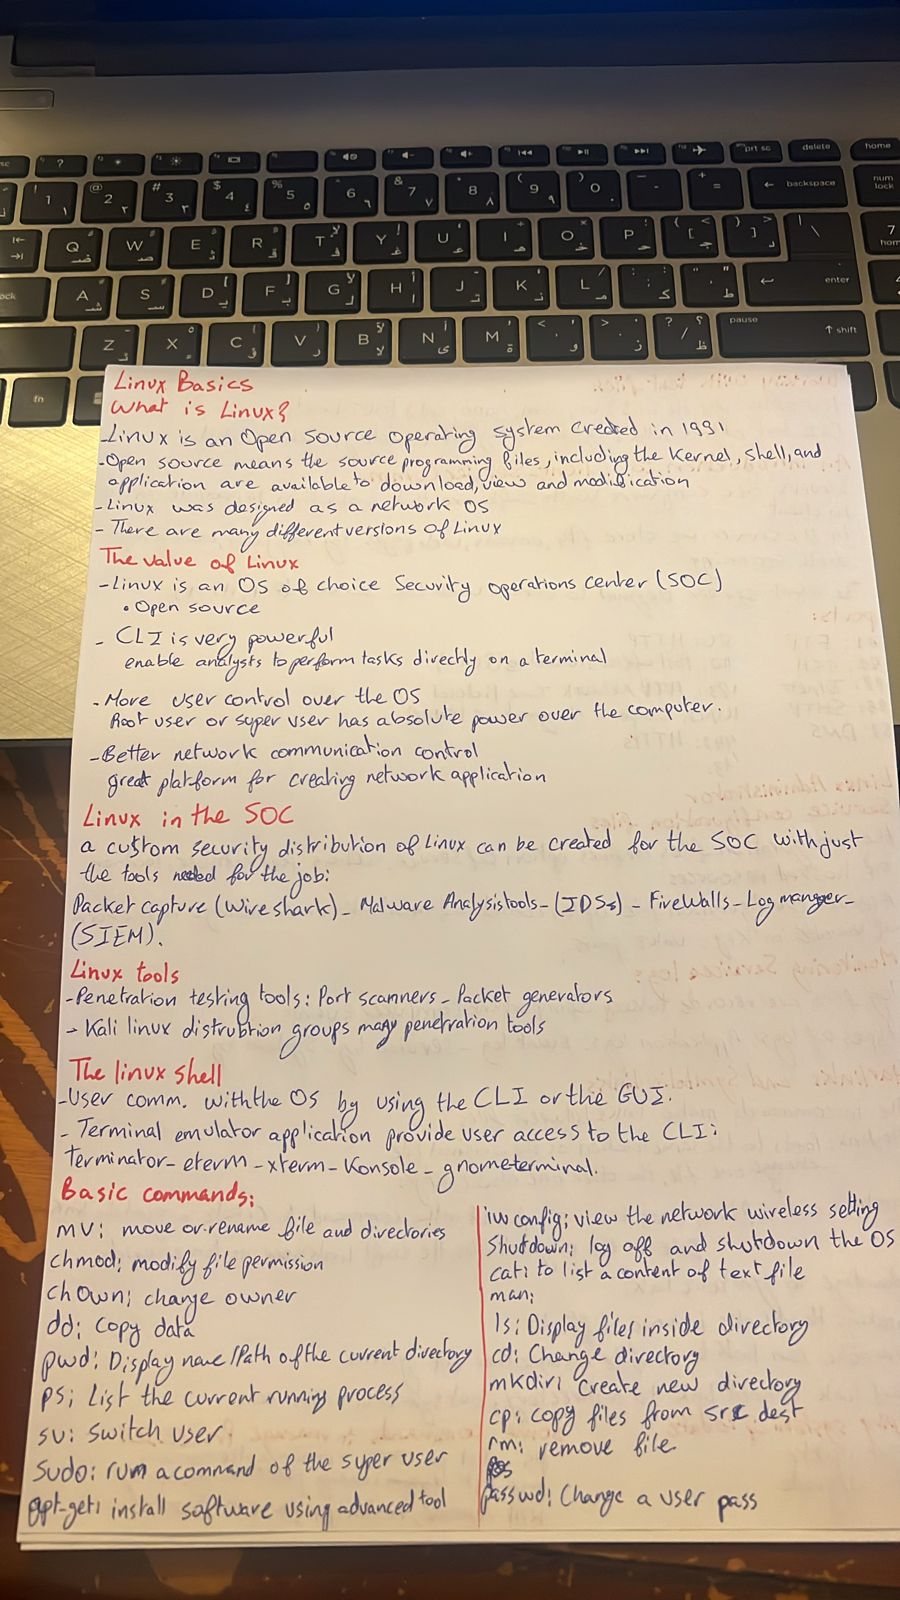 Linux Basics
What is Linux?
-Linux is an Open Source operating system created in 1991
-Open source means the source programming files, including the Kernel, shell, and
application are available to download, view and modification
-Linux was designed as a network OS
- There are many different versions of Linux
The value of Linux
-Linux is an OS of choice Security operations center (SOC)
• Open source
- CLI is very powerful
enable analysts to perform tasks directly on a terminal
- More user control over the OS
Root user or super user has absolute power over the computer.
-Better network communication control
great platform for creating network application
Linux in the SOC
a custom security distribution of Linux can be created for the SOC with just
the tools needed for the job:
Packet capture (wireshark)_ Malware Analysis tools-(IDSs) - FireWalls-Log manger-
(SIEM).
Linux tools
-Penetration testing tools: Port scanners_ Packet generators
- Kali linux distrubtion groups many penetration tools
The linux shell
-User comm. with the OS by using the CLI or the GUI.
- Terminal emulator application provide user access to the CLI:
Terminator- eterm -xterm- Konsole- gnome terminal.
Basic commands:
mv: move or rename file and directories
chmod: modify file permission
chown: change owner
dd: copy data
pwd: Display name /Path of the current directory
ps: List the current running process
su: switch user
sudo: rum a command of the syper user
apt-get: install software using advanced tool
iwconfig: view the network wireless setting
Shutdown: log off and shutdown the OS
cat: to list a content of text file
man:
ls: Display files inside directory
cd: Change directory
mkdir: create new directory
cp: copy files from src dest
rm: remove file
passwd: Change a user pass